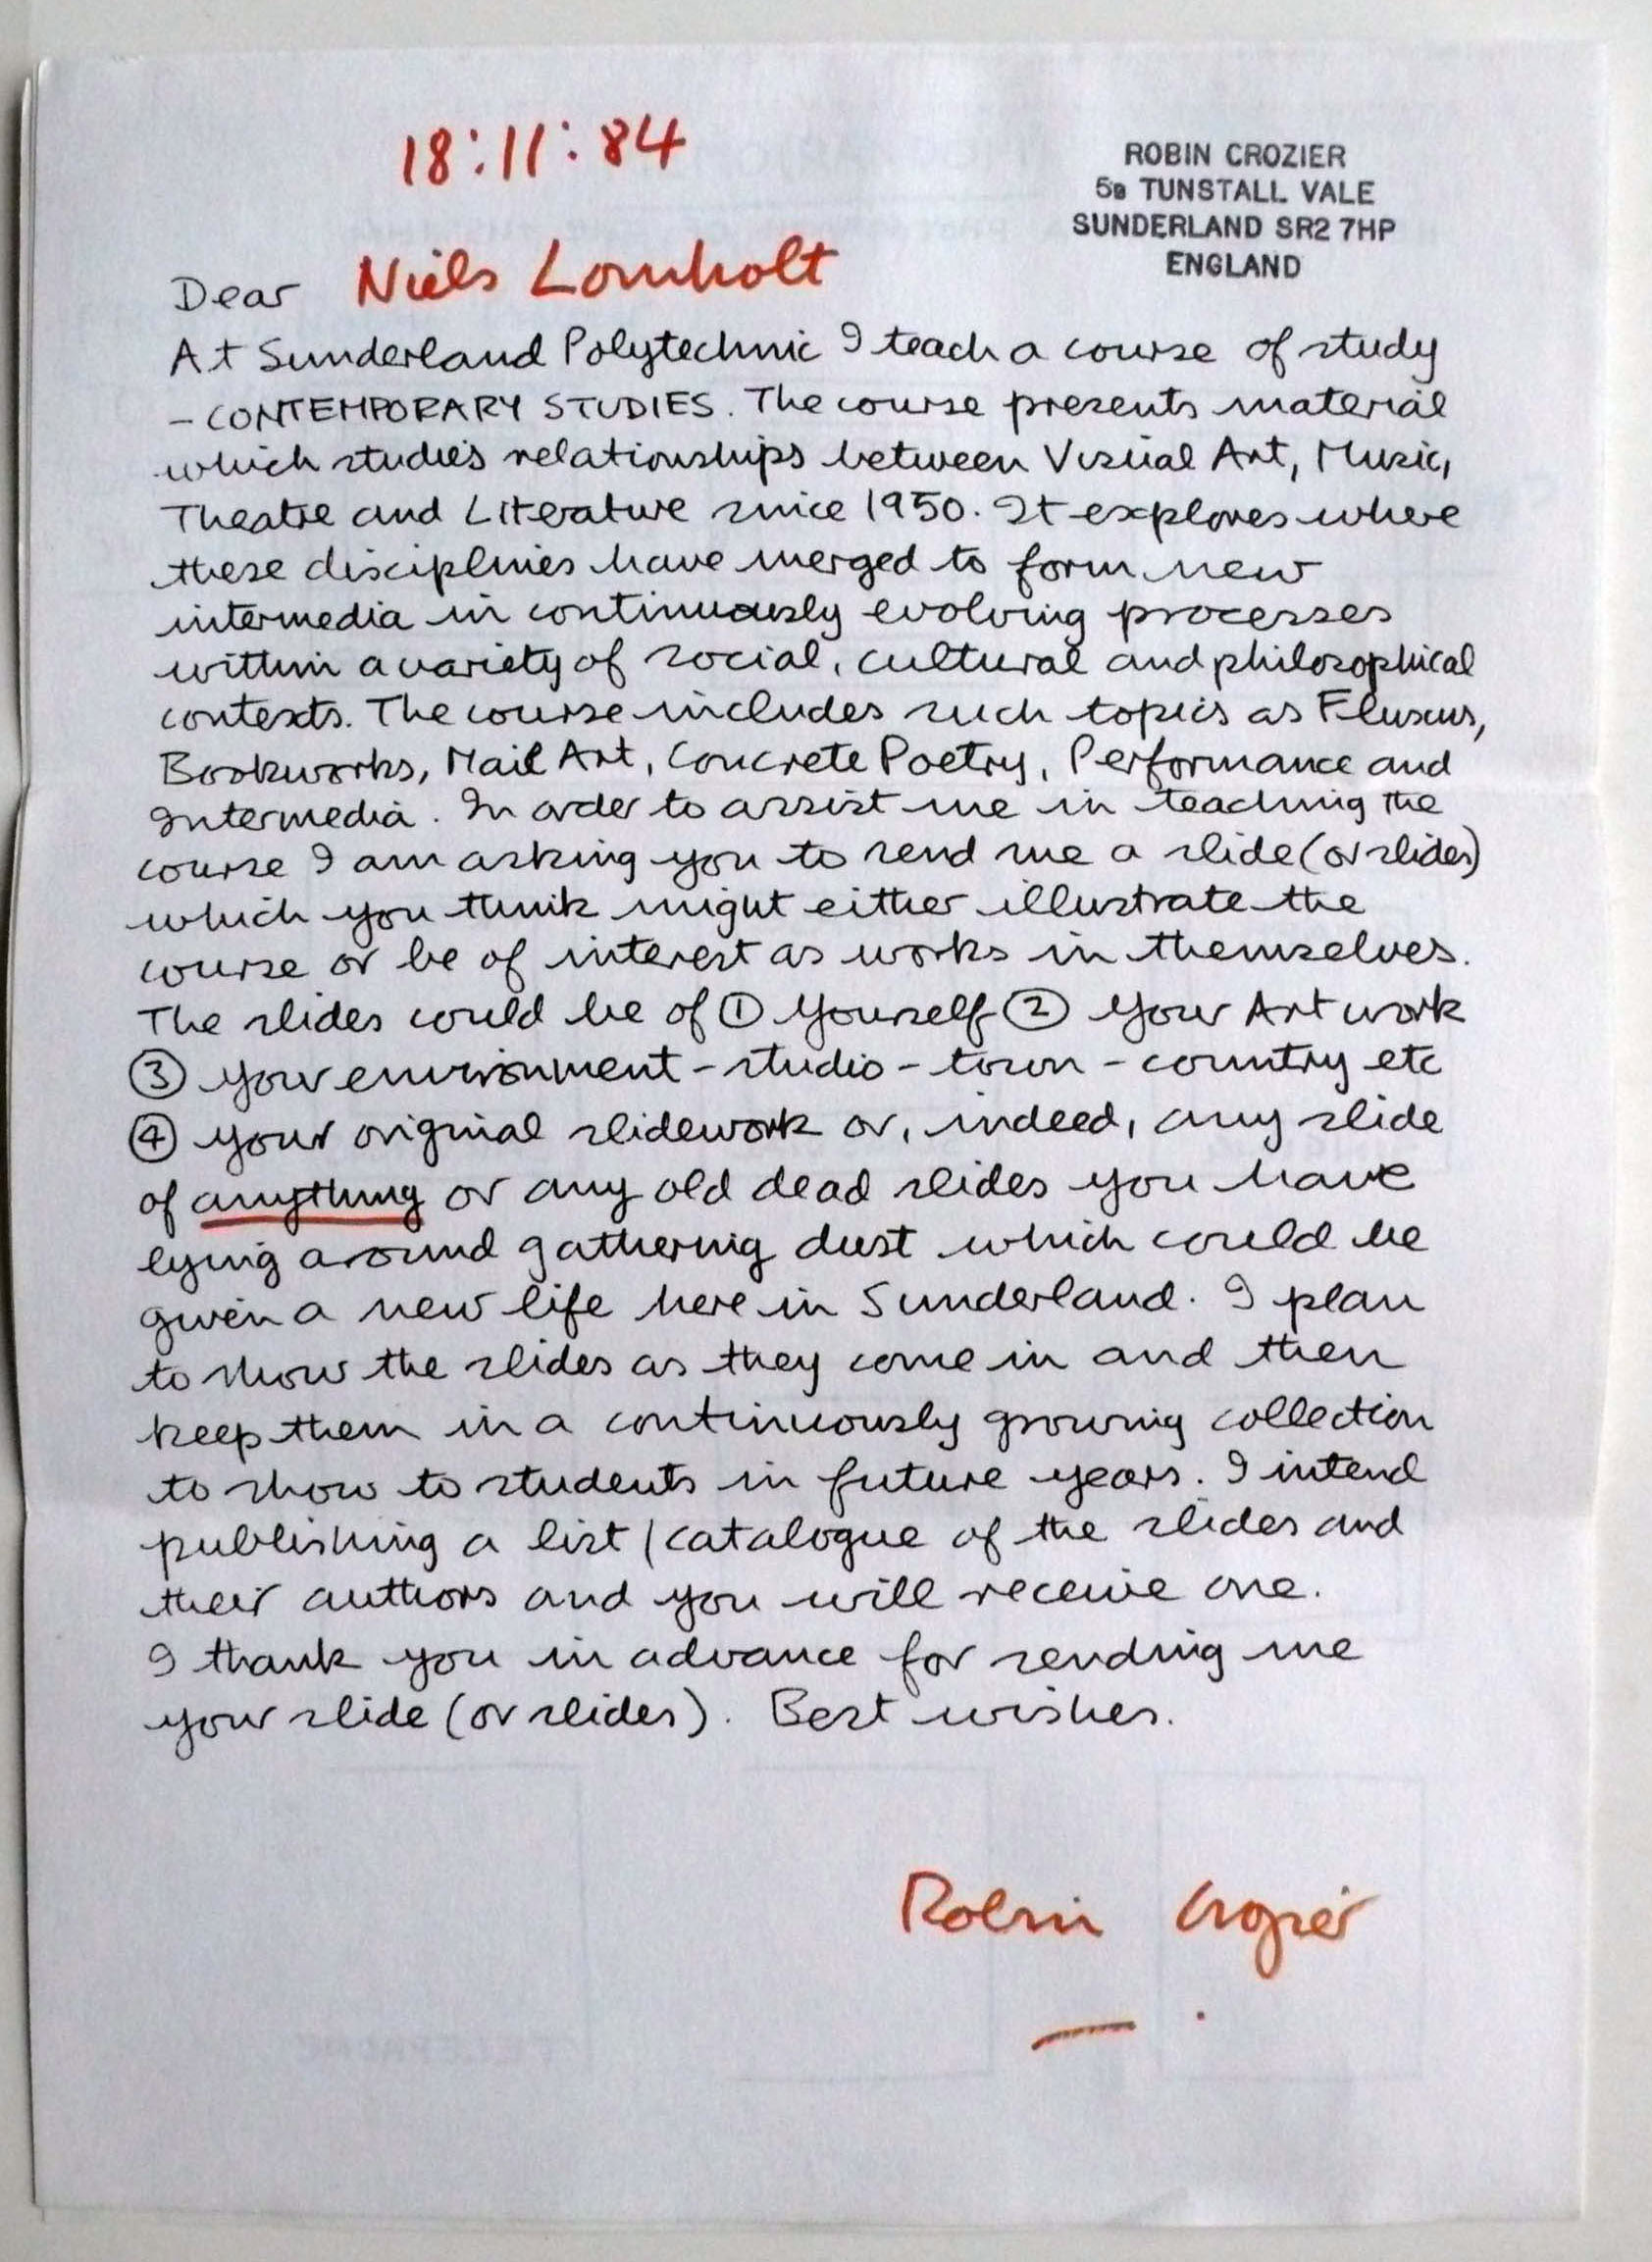 18:11:84
ROBIN CROZIER
5B TUNSTALL VALE
SUNDERLAND SR2 7HP
ENGLAND
Dear Niels Lomholt
At Sunderland Polytechnic I teach a course of study
- CONTEMPORARY STUDIES. The course presents material
which studies relationships between Visual Art, Music,
Theatre and Literature since 1950. It explores where
these disciplines have merged to form new
intermedia in continuously evolving processes
within a variety of social, cultural and philosophical
contexts. The course includes such topics as Fluxus,
Bookworks, Mail Art, Concrete Poetry, Performance and
Intermedia. In order to assist me in teaching the
course I am asking you to send me a slide (or slides)
which you think might either illustrate the
course or be of interest as works in themselves.
The slides could be of ① Yourself ② Your Art work
③ your environment - studio - town - country etc
④ your original slidework or, indeed, any slide
of anything or any old dead slides you have
lying around gathering dust which could be
given a new life here in Sunderland. I plan
to show the slides as they come in and then
keep them in a continuously growing collection
to show to students in future years. I intend
publishing a list / catalogue of the slides and
their authors and you will receive one.
I thank you in advance for sending me
your slide (or slides). Best wishes.
Robin Crozier